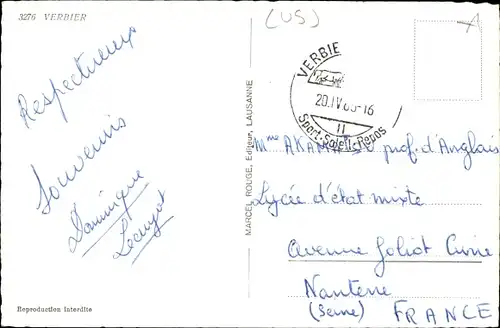 3276 VERBIER
(US)
A
Respectueux
Souvenirs
Dominique
VERBIE
20.IV 65-16
II
Sport-Soleil-Repos
MARCEL ROUGE, Editeur, LAUSANNE
Mme prof. d'Anglais
Lycée d'état mixte
Avenue Joliot Curie
Nanterre
(Seine) FRANCE
Reproduction interdite